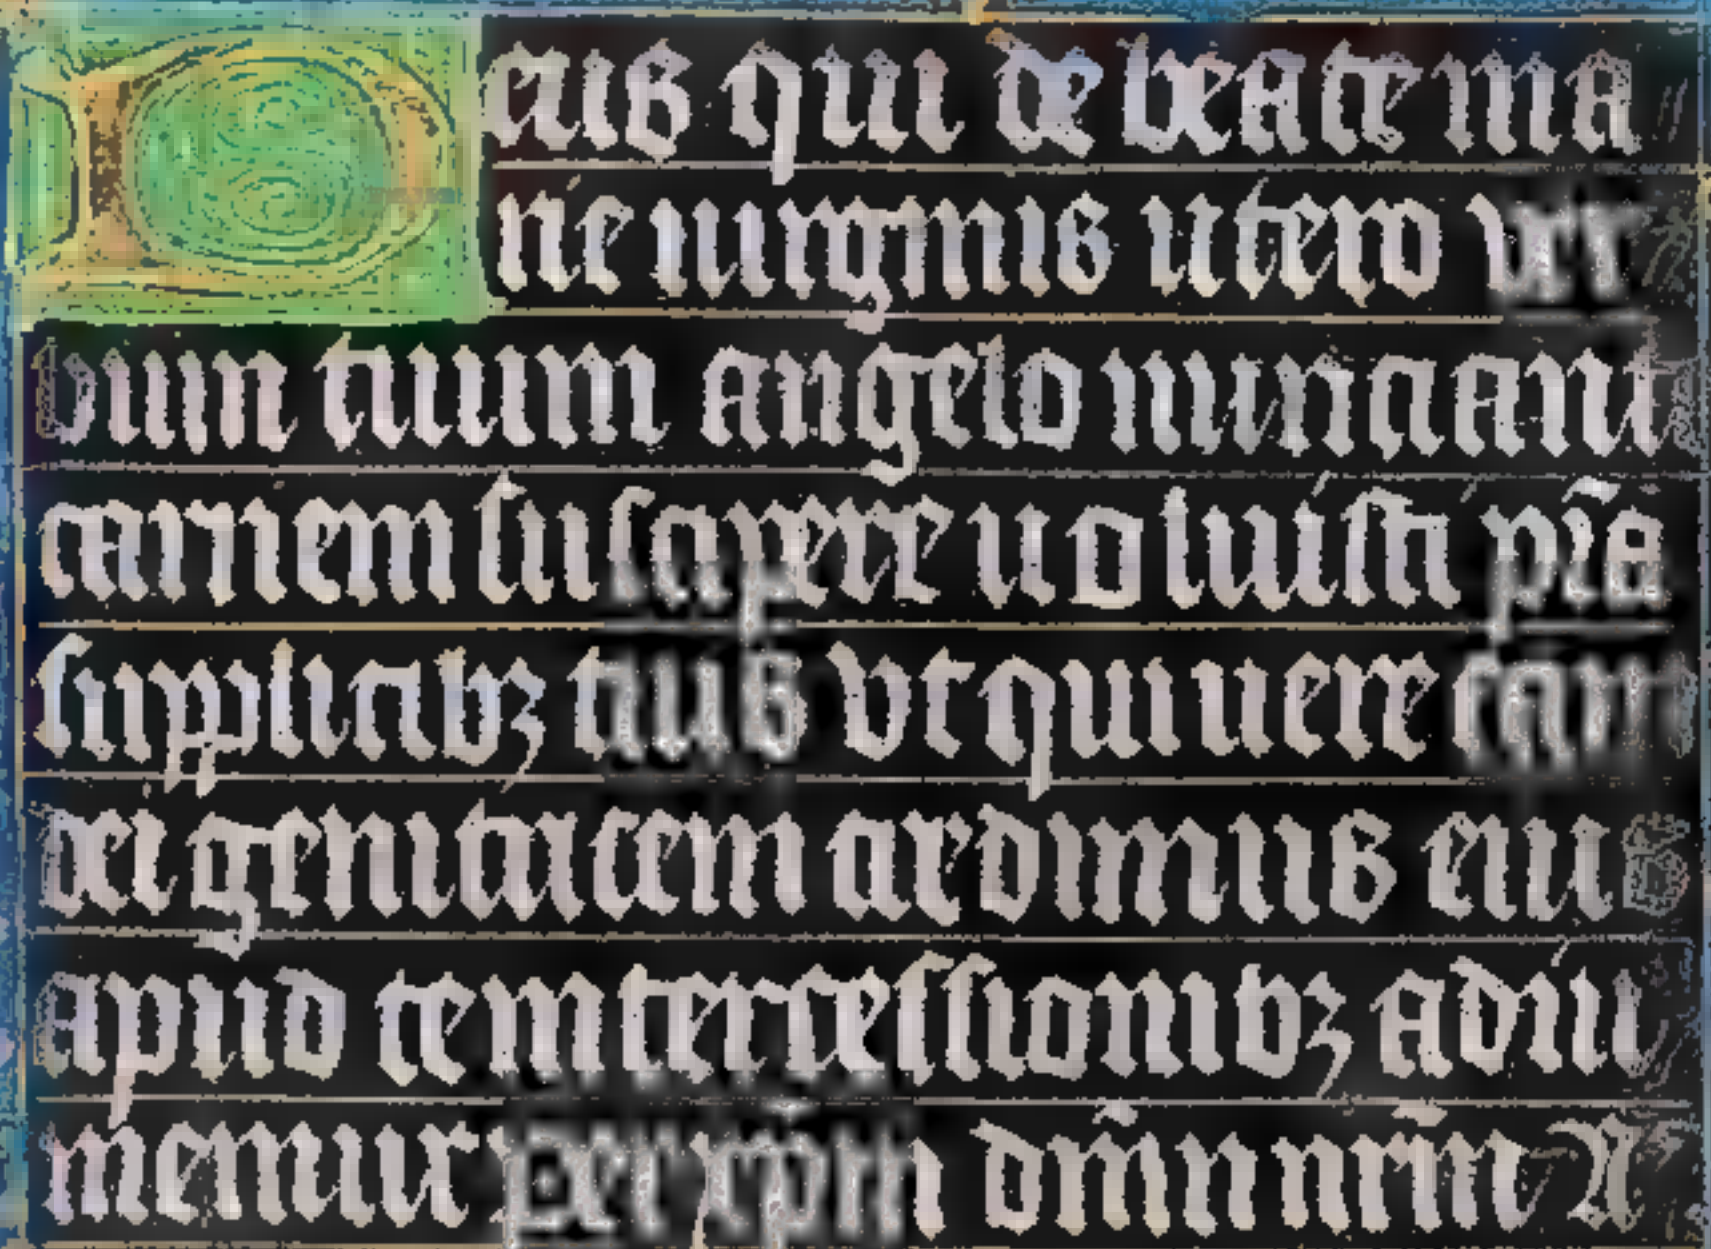 Deus qui de beate ma
rie uirginis utero ver
bum tuum angelo nunciant
carnem suscipere uoluisti p̄ta
supplicibꝫ tuis vt qui uere eam
dei genitricem credimus eius
apud te intercessionibꝫ adiu
uemur per xp̄m dm̄ nr̄m A